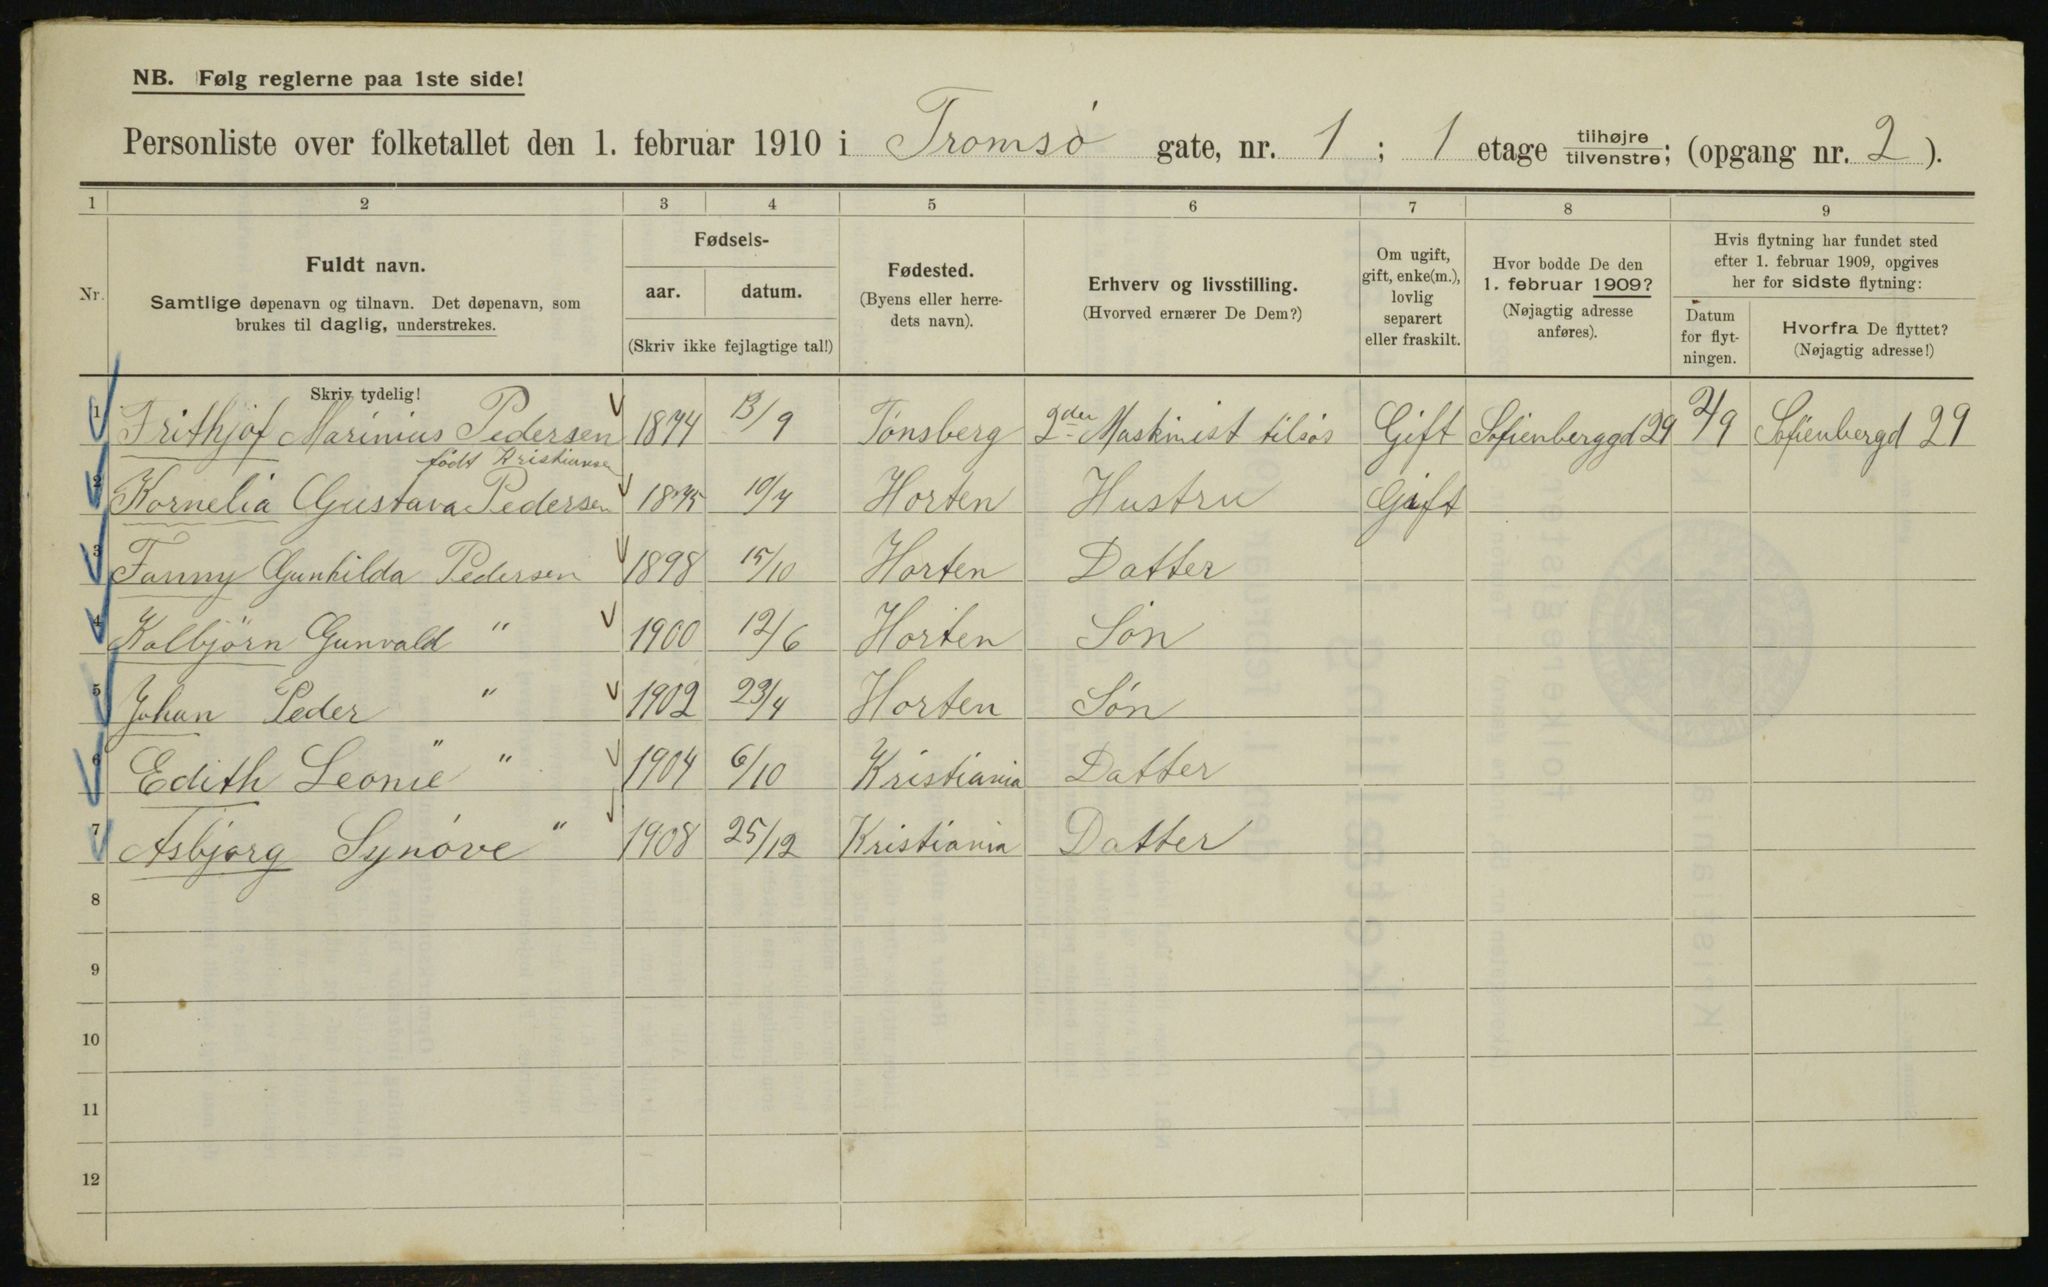 NB. Følg reglerne paa 1ste side!
Personliste over folketallet den 1. februar 1910 i Tromsø gate, nr. 1 ; 1 etage tilhøjre/tilvenstre; (opgang nr. 2 ).
1 2 3 4 5 6 7 8 9
Nr.
Fuldt navn.
Samtlige døpenavn og tilnavn. Det døpenavn, som
brukes til daglig, understrekes.
Skriv tydelig!
Fødsels-
aar. datum.
(Skriv ikke fejlagtige tal!)
Fødested.
(Byens eller herre-
dets navn).
Erhverv og livsstilling.
(Hvorved ernærer De Dem?)
Om ugift,
gift, enke(m.),
lovlig
separert
eller fraskilt.
Hvor bodde De den
1. februar 1909?
(Nøjagtig adresse
anføres).
Hvis flytning har fundet sted
efter 1. februar 1909, opgives
her for sidste flytning:
Datum
for flyt-
ningen.
Hvorfra De flyttet?
(Nøjagtig adresse!)
1 Frithjof Marinius Pedersen 1874 13/9 Tønsberg 2den Maskinist tilsøs Gift Sofienberggd 29 2/9 Sofienbergd 29
født Kristiansen
2 Kornelia Gustava Pedersen 1875 10/7 Horten Hustru Gift
3 Fanny Gunhilda Pedersen 1898 15/10 Horten Datter
4 Kolbjörn Gunvald " 1900 12/6 Horten Søn
5 Johan Peder " 1902 23/4 Horten Søn
6 Edith Leonie " 1904 6/10 Kristiania Datter
7 Asbjørg Synöve " 1908 25/12 Kristiania Datter
8
9
10
11
12